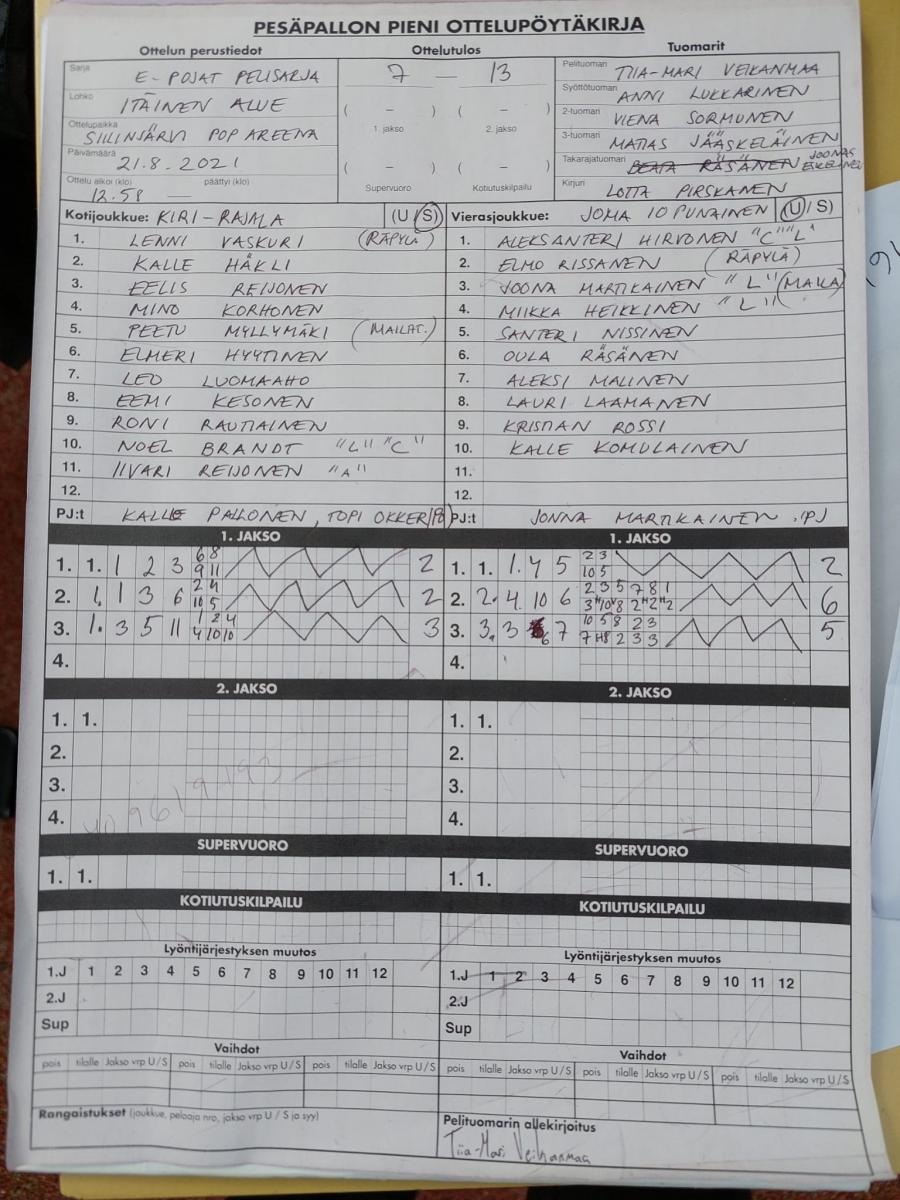 PESÄPALLON PIENI OTTELUPÖYTÄKIRJA
Ottelun perustiedot
Sarja E-POJAT PELISARJA
Lohko ITÄINEN ALUE
Ottelupaikka SIILINJÄRVI POP AREENA
Päivämäärä 21.8.2021
Ottelu alkoi (klo) 12.58 päättyi (klo)
Ottelutulos
7 — 13
( – ) ( – )
1. jakso 2. jakso
( – ) ( – )
Supervuoro Kotiutuskilpailu
Tuomarit
Pelituomari TIIA-MARI VEIKANMAA
Syöttötuomari ANNI LUKKARINEN
2-tuomari VIENA SORMUNEN
3-tuomari MATIAS JÄÄSKELÄINEN
Takarajatuomari BEATA RÄSÄNEN JOONAS
Kirjuri LOTTA PIRSKANEN
Kotijoukkue: KIRI-RAJALA (U / S)
1. LENNI VASKURI (RÄPYLÄ)
2. KALLE HÄKLI
3. EELIS REIJONEN
4. MINO KORHONEN
5. PEETU MYLLYMÄKI (MAILAT.)
6. ELMERI HYYTINEN
7. LEO LUOMAAHO
8. EEMI KESONEN
9. RONI RAUTIAINEN
10. NOEL BRANDT "L" "C"
11. IIVARI REIJONEN "A"
12.
PJ:t KALLE PALLONEN, TOPI
Vierasjoukkue: JOMA 10 PUNAINEN (U / S)
1. ALEKSANTERI HIRVONEN "C" "L"
2. ELMO RISSANEN (RÄPYLÄ)
3. JOONA MARTIKAINEN "L" (MAILA)
4. MIIKKA HEIKKINEN "L"
5. SANTERI NISSINEN
6. OULA RÄSÄNEN
7. ALEKSI MALINEN
8. LAURI LAAMANEN
9. KRISTIAN ROSSI
10. KALLE KOMULAINEN
11.
12.
PJ:t JONNA MARTIKAINEN, PJ
1. JAKSO
1. 1. 1 2 3 6 8 2
9 11
2. 1. 1 3 6 2 4 2
10 5
3. 1. 3 5 11 1 2 4 3
4 10 10
4.
1. JAKSO
1. 1. 1. 4 5 2 3 2
10 5
2. 2. 4. 10 6 2 3 5 7 8 1 6
3. 3. 3 6 7 10 5 8 2 3 5
4.
2. JAKSO
1. 1.
2.
3.
4.
2. JAKSO
1. 1.
2.
3.
4.
SUPERVUORO
1. 1.
SUPERVUORO
1. 1.
KOTIUTUSKILPAILU
KOTIUTUSKILPAILU
Lyöntijärjestyksen muutos
1.J 1 2 3 4 5 6 7 8 9 10 11 12
2.J
Sup
Lyöntijärjestyksen muutos
1.J 1 2 3 4 5 6 7 8 9 10 11 12
2.J
Sup
Vaihdot
pois tilalle Jakso vrp U / S pois tilalle Jakso vrp U / S pois tilalle Jakso vrp U / S
Vaihdot
pois tilalle Jakso vrp U / S pois tilalle Jakso vrp U / S pois tilalle Jakso vrp U / S
Rangaistukset (joukkue, pelaaja nro, jakso vrp U / S ja syy)
Pelituomarin allekirjoitus
Tiia-Mari Veikanmaa